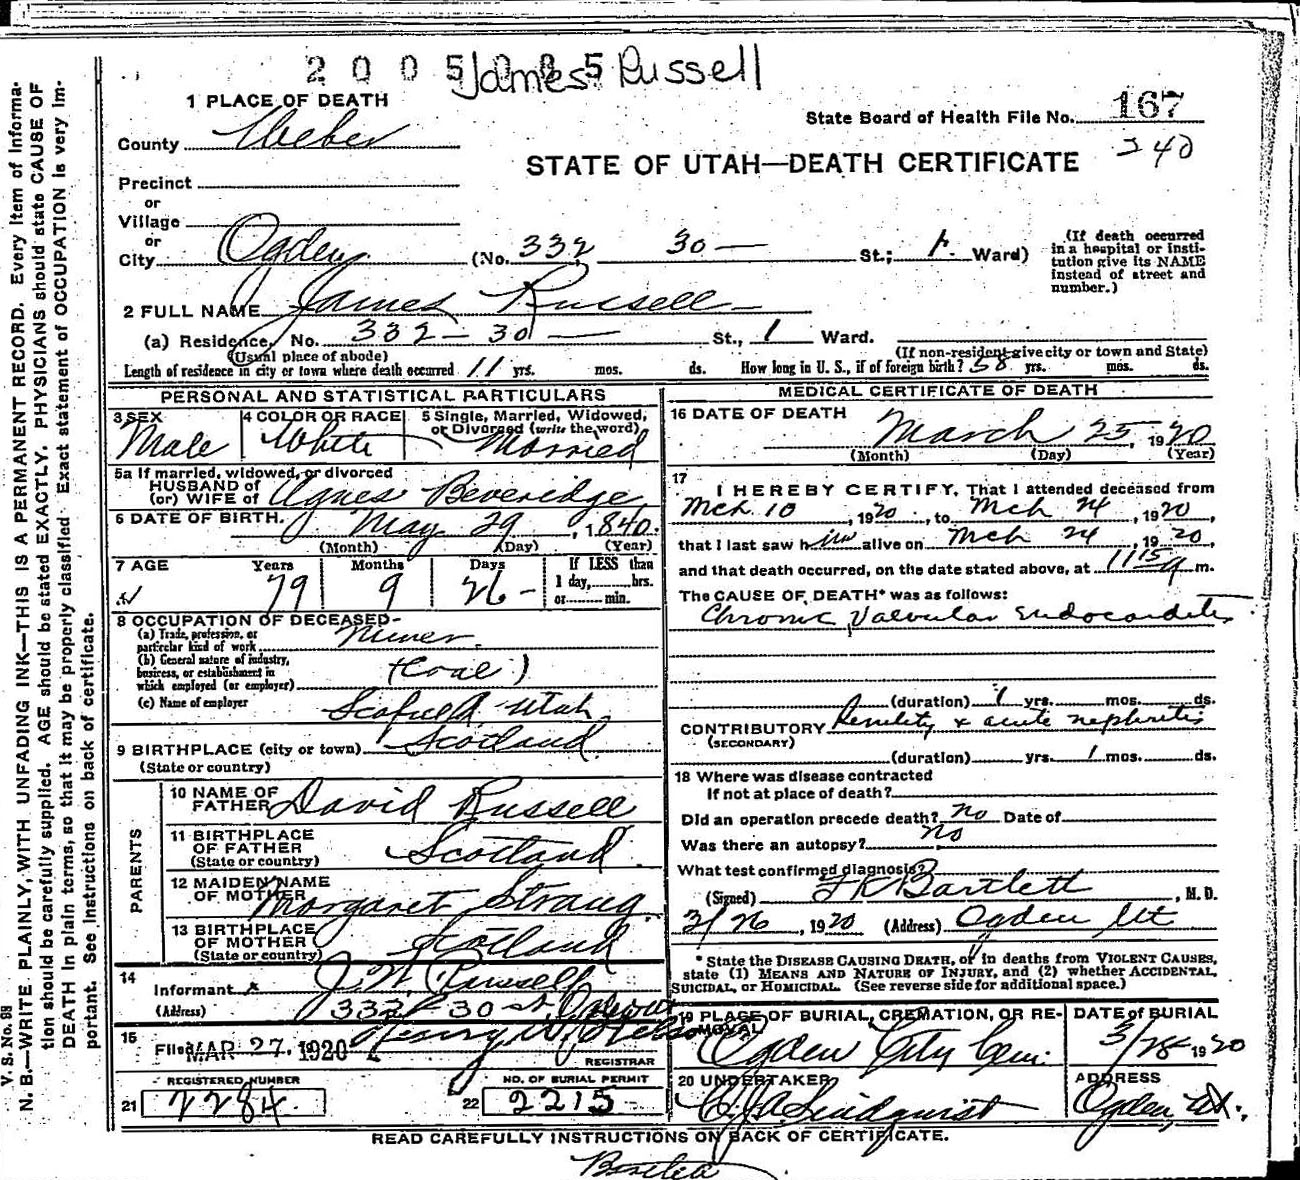 2005085 James Russell
1 PLACE OF DEATH
County Weber
State Board of Health File No. 167
240
STATE OF UTAH—DEATH CERTIFICATE
Precinct
or
Village
or
City Ogden (No. 332, 30 — St.; 1. Ward)
(If death occurred in a hospital or insti-
tution give its NAME instead of street and number.)
2 FULL NAME James Russell
(a) Residence, No. 332 – 30 — St., 1 Ward.
(Usual place of abode) (If non-resident give city or town and State)
Length of residence in city or town where death occurred 11 yrs. mos. ds. How long in U. S., if of foreign birth? 58 yrs. mos. ds.
PERSONAL AND STATISTICAL PARTICULARS
3 SEX Male
4 COLOR OR RACE White
5 Single, Married, Widowed, or Divorced (write the word) Married
5a If married, widowed, or divorced
HUSBAND of
(or) WIFE of Agnes Beveridge
6 DATE OF BIRTH. May 29, 1840.
(Month) (Day) (Year)
7 AGE Years 79 Months 9 Days 26 –
If LESS than 1 day, hrs. or min.
8 OCCUPATION OF DECEASED
(a) Trade, profession, or particular kind of work Miner
(b) General nature of industry, business, or establishment in which employed (or employer) (Coal)
(c) Name of employer Scofield, Utah
9 BIRTHPLACE (city or town) Scotland
(State or country)
PARENTS
10 NAME OF FATHER David Russell
11 BIRTHPLACE OF FATHER Scotland.
(State or country)
12 MAIDEN NAME OF MOTHER Margaret Strang.
13 BIRTHPLACE OF MOTHER Scotland
(State or country)
14 Informant J. W. Russell
(Address) 332 – 30 st. Ogden
15 Filed MAR 27. 1920 Henry W.
REGISTRAR
REGISTERED NUMBER
21 2284
NO. OF BURIAL PERMIT
22 2215
MEDICAL CERTIFICATE OF DEATH
16 DATE OF DEATH March 25, 1920
(Month) (Day) (Year)
17 I HEREBY CERTIFY, That I attended deceased from
Mch 10, 1920, to Mch 24, 1920,
that I last saw him alive on Mch 24, 1920,
and that death occurred, on the date stated above, at 1115 a m.
The CAUSE OF DEATH* was as follows:
Chronic Valvular Endocarditis
(duration) 1 yrs. mos. ds.
CONTRIBUTORY Senility & acute nephritis
(SECONDARY)
(duration) yrs. 1 mos. ds.
18 Where was disease contracted
If not at place of death?
Did an operation precede death? No Date of
Was there an autopsy? No
What test confirmed diagnosis?
(Signed) F K Bartlett, M. D.
3/26, 1920 (Address) Ogden Ut
* State the DISEASE CAUSING DEATH, or in deaths from VIOLENT CAUSES,
state (1) MEANS AND NATURE OF INJURY, and (2) whether ACCIDENTAL,
SUICIDAL, or HOMICIDAL. (See reverse side for additional space.)
19 PLACE OF BURIAL, CREMATION, OR RE-
MOVAL Ogden City Cem.
DATE of BURIAL
3/28 1920
20 UNDERTAKER
C. J. A. Lindquist
ADDRESS
Ogden, Ut.
READ CAREFULLY INSTRUCTIONS ON BACK OF CERTIFICATE.
V. S. No. 98
N. B.—WRITE PLAINLY, WITH UNFADING INK—THIS IS A PERMANENT RECORD. Every item of informa-
tion should be carefully supplied. AGE should be stated EXACTLY. PHYSICIANS should state CAUSE OF
DEATH in plain terms, so that it may be properly classified. Exact statement of OCCUPATION is very im-
portant. See instructions on back of certificate.